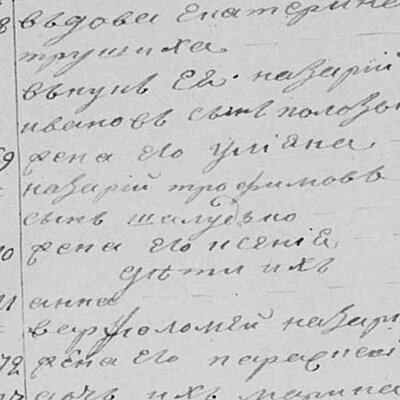 8 вѣдова екатерина
трушиха
вънукъ ей назарій
ивановъ сынъ полозъ
69 жена его уліяна
назарій трофимовъ
сынъ шалудько
жена его ксенія
дѣти ихъ
анна
варфоломей назар
72 жена его параскеві
дочь ихъ марина